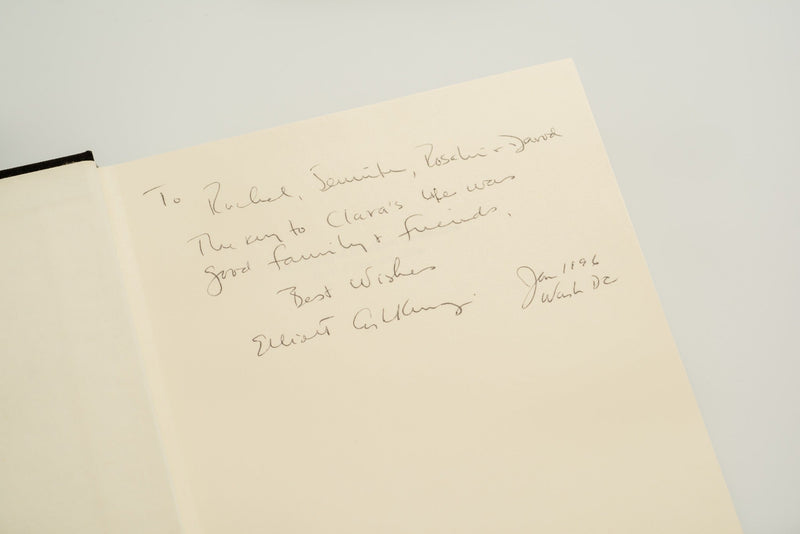 To Rachel, Jennifer, Rosalie + David
The key to Clara's life was
good family + friends.
Best Wishes
Elliott
Jan 1996
Wash DC